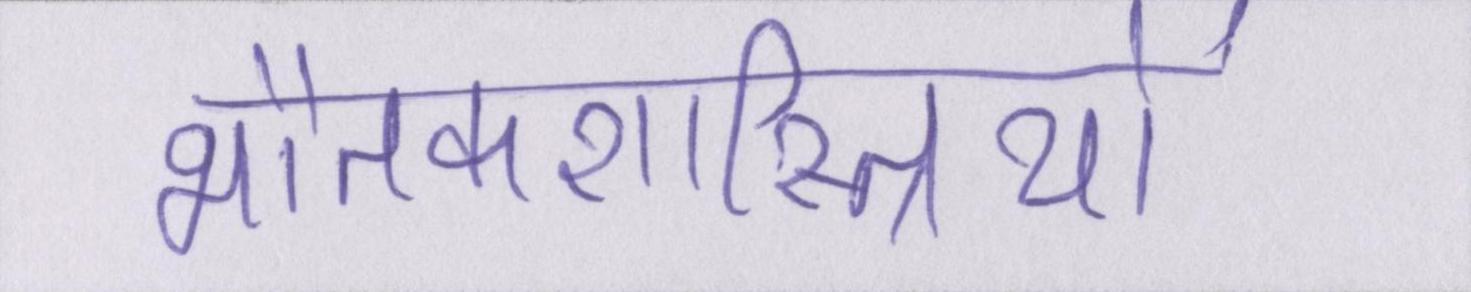 भौतकशास्त्रियों